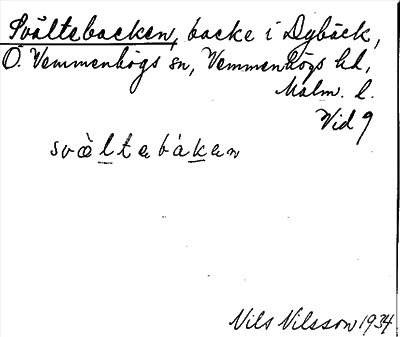 Svältebacken, backe i Dybäck,
Ö. Vemmenhögs sn, Vemmenhögs hd,
Malm. l.
Vid 9
svàltebáken
Nils Nilsson 1934